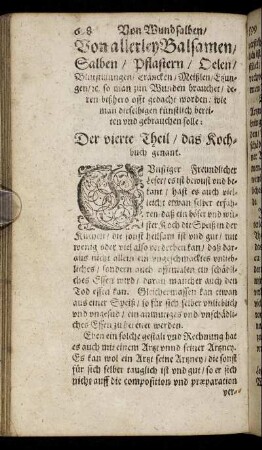 Von Wundsalben/
Von allerley Balsamen/
Salben / Pflastern / Oelen/
Blutstillungen / Träncken / Meißlen / Etzun-
gen/ꝛc. so man zun Wunden brauchet / de-
ren bißhero offt gedacht worden: wie
man dieselbigen künstlich berei-
ten und gebrauchen solle:
Der vierte Theil / das Koch-
buch genant.
Günstiger Freundlicher
Leser / es ist bewust und be-
kant / hast es auch viel-
leicht etwan selber erfah-
ren daß ein böser und wü-
ster Koch die Speiß in der
Kuchen / die sonst heilsam ist und gut / mit
wenig oder viel also verderben kan / daß dar-
aus nicht allein ein ungeschmacktes unlieb-
liches / sondern auch offtmalen ein schädli-
ches Essen wird / daran mancher auch den
Tod essen kan. Gleichermassen kan etwan
aus einer Speiß / so für sich selber unlieblich
und ungesund / ein anmutiges und unschädli-
ches Essen zubereitet werden.
Eben ein solche gestalt und Rechnung hat
es auch mit einem Artzt unnd seiner Artzney.
Es kan wol ein Artzt seine Artzney / die sonst
für sich selber tauglich ist und gut / so er sich
nicht auff die composition und præparation
ver-